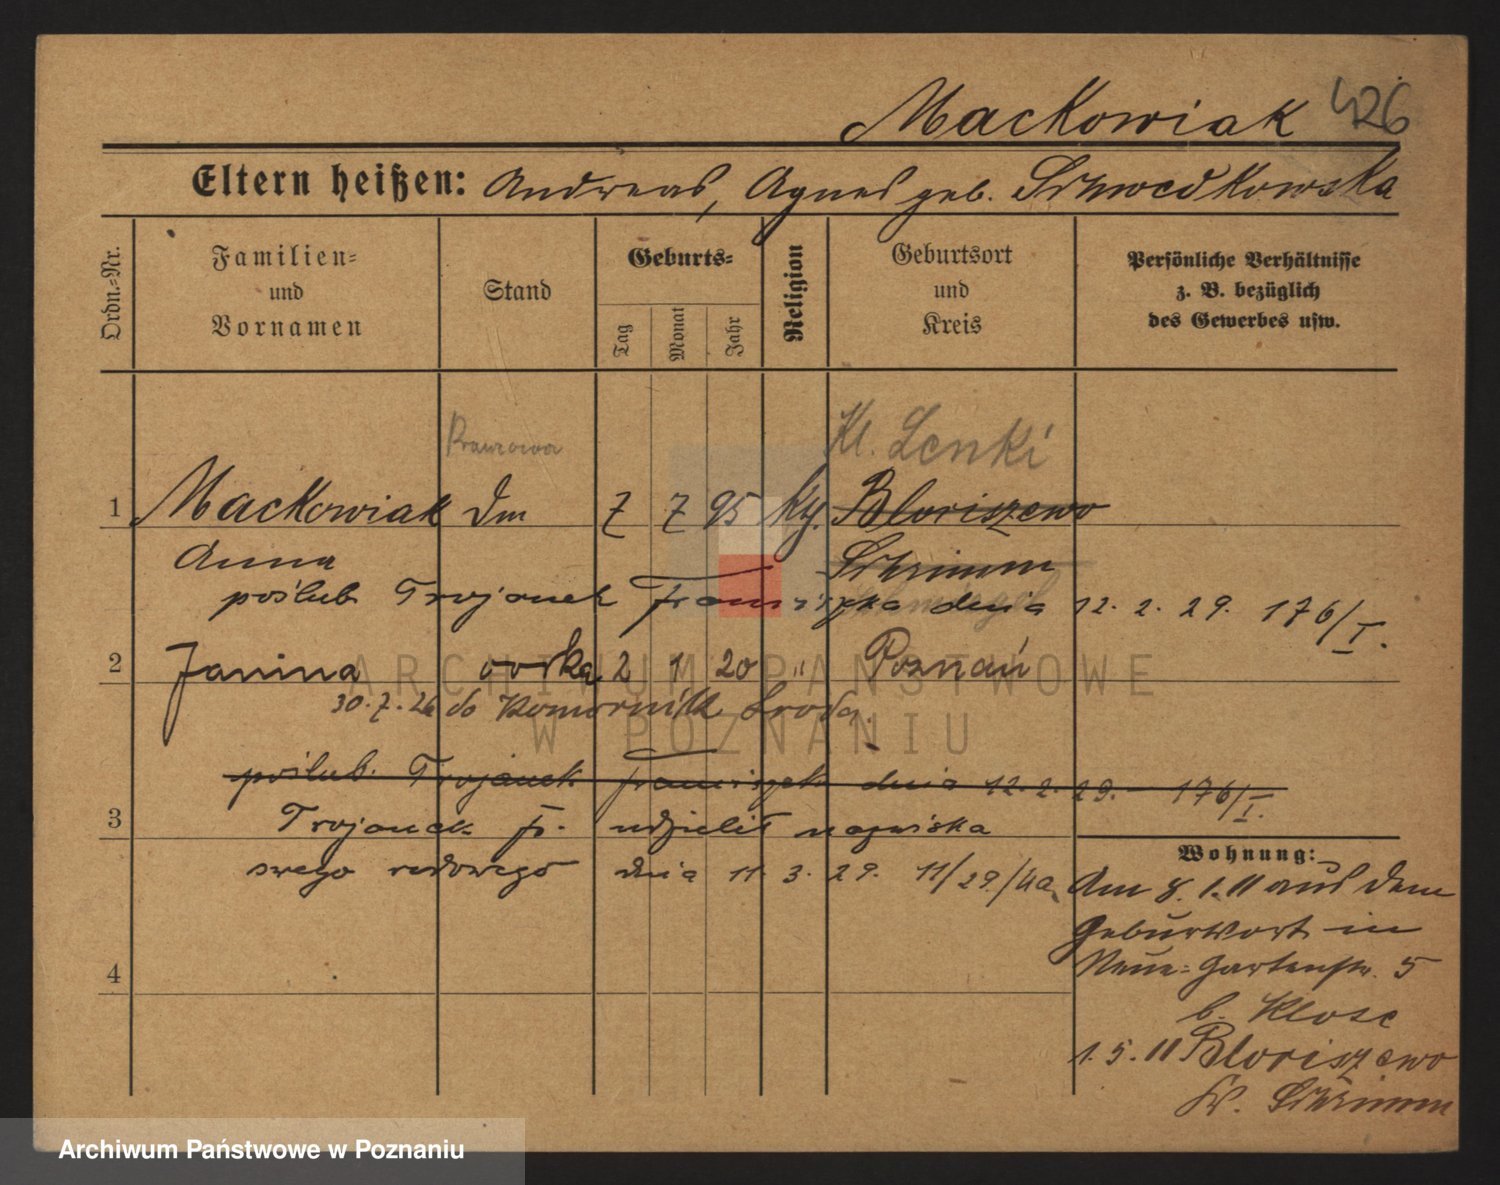 Mackowiak 426
Eltern heißen: Andreas, Agnes geb. Szwedkowska
Ordn.-Nr.
Familien-
und
Vornamen
Stand
Geburts-
Tag
Monat
Jahr
Religion
Geburtsort
und
Kreis
Persönliche Verhältnisse
z. B. bezüglich
des Gewerbes usw.
Kl. Lenki
1 Mackowiak Dm 7 7 95 kg. Bloriszewo
Anna Schrimm
poślub. Trojanek Franciszka dnia 12. 2. 29. 176/I.
2 Janina córka 2 1 20 " Poznań
30.7.26 do Komornik Środa.
poślub. Trojanek Franciszek dnia 12. 2. 29. - 176/I.
3 Trojanek Fr. udzielił nazwiska
swego rodowego dnia 11. 3. 29. 11/29./4a
Wohnung:
Am 8. 1. 11 aus dem
Geburtsort in
Neue-Gartenstr. 5
b. Klose
1. 5. 11 Bloriszewo
Kr. Schrimm
4
ARCHIWUM PAŃSTWOWE
W POZNANIU
Archiwum Państwowe w Poznaniu